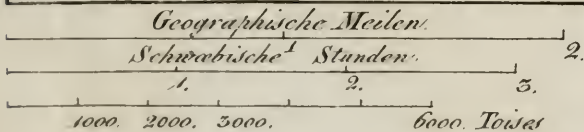 Geographische Meilen.
1
2.
Schwœbische Stunden.
1. 2. 3.
1000. 2000. 3000. 6000. Toises